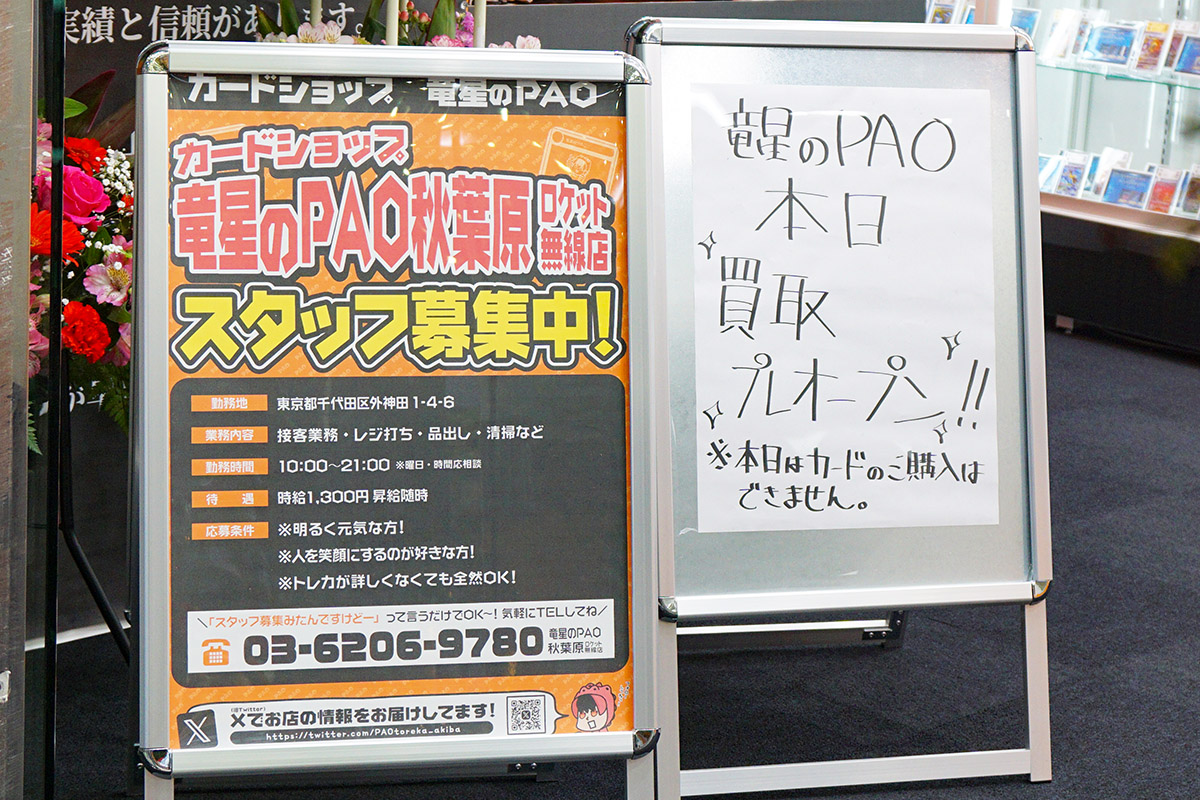 実績と信頼があります。
カードショップ 竜星のPAO
カードショップ
竜星のPAO秋葉原 ロケット無線店
スタッフ募集中!
勤務地 東京都千代田区外神田1-4-6
業務内容 接客業務・レジ打ち・品出し・清掃など
勤務時間 10:00～21:00 ※曜日・時間応相談
待遇 時給1,300円 昇給随時
応募条件 ※明るく元気な方!
※人を笑顔にするのが好きな方!
※トレカが詳しくなくても全然OK!
＼「スタッフ募集みたんですけどー」って言うだけでOK～! 気軽にTELしてね／
03-6206-9780 竜星のPAO 秋葉原 ロケット無線店
(旧Twitter)
Xでお店の情報をお届けしてます!
https://twitter.com/PAOtoreka_akiba
竜星のPAO
本日
買取
プレオープン!!
※本日はカードのご購入は
できません。